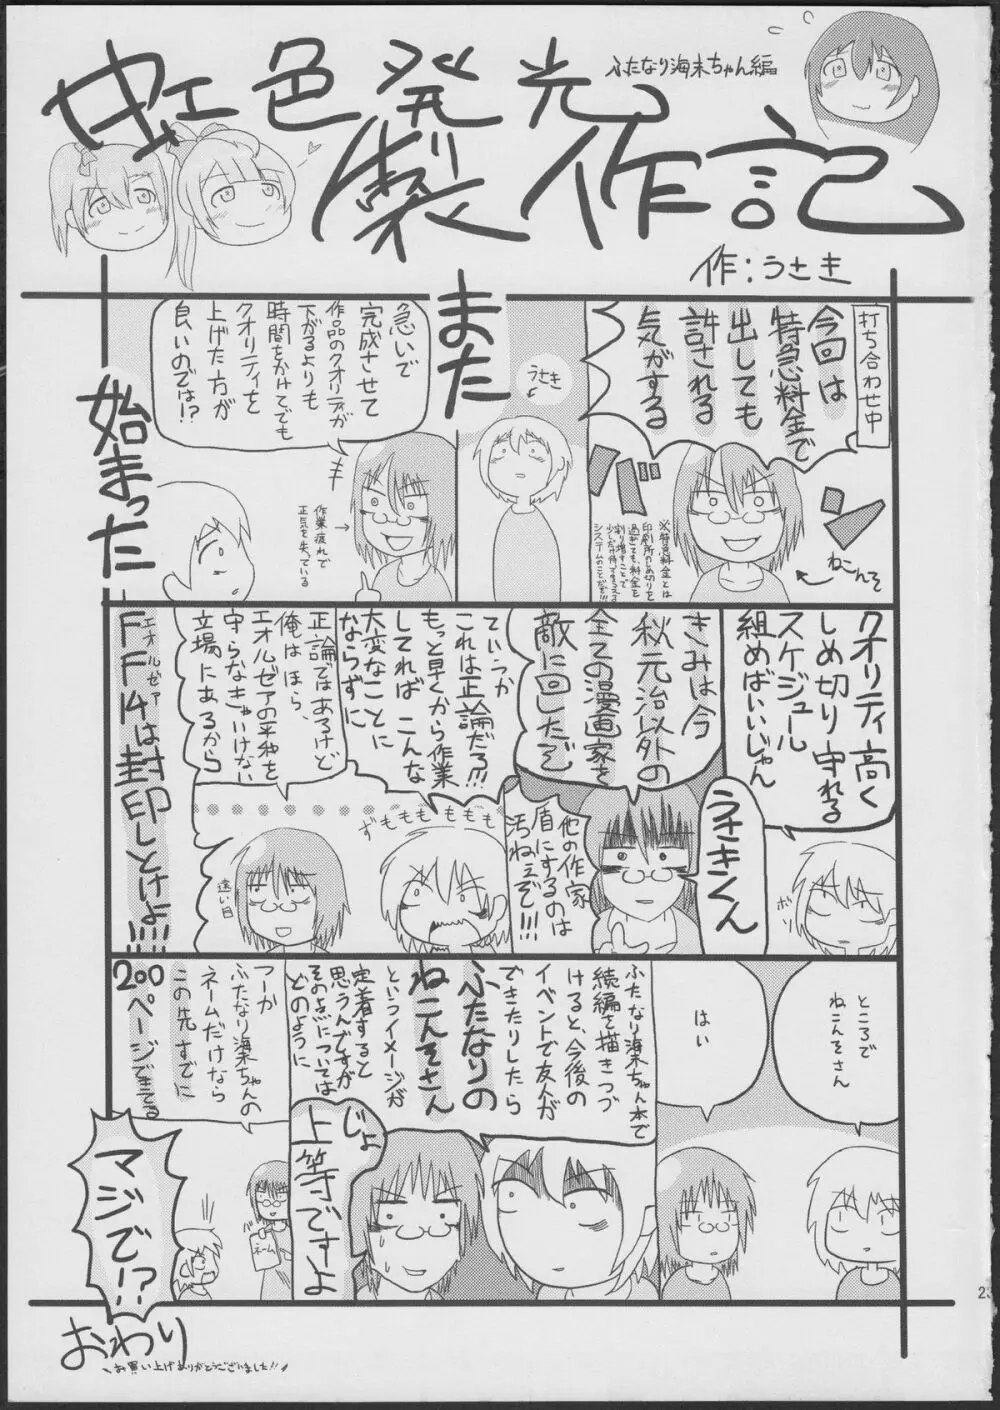 虹色発光。
製作記
ふたなり海未ちゃん編
作:うさき
打ち合わせ中
今回は
特急料金で
出しても
許される
気がする
バン
ねこんそ
※特急料金とは
印刷所のしめ切りを
過ぎても、料金を
割り増すことで
少しだけ待ってもらえる
システムのことだぞ!!!
うさき
また
急いで
完成させて
作品のクオリティが
下がるよりも
時間をかけてでも
クオリティを
上げた方が
良いのでは!?
作業疲れで
正気を失っている
始まった
クオリティ高く
しめ切り守れる
スケジュール
組めばいいじゃん
ボソ
うさきくん
きみは今
秋元治以外の
全ての漫画家を
敵に回したぞ
他の作家
盾にするのは
汚ねえぞ!!!
ていうか
これは正論だろ!!!
もっと早くから作業
してれば こんな
大変なことに
ならずに
ずももももももも
正論ではあるけど
俺は ほら、
エオルゼアの平和を
守らなきゃいけない
立場にあるから
遠い目
エオルゼア
FF14は封印しとけよ!!!!
ところで
ねこんそさん
はい
ふたなり海未ちゃん本で
続編を描きつづ
けると、今後の
イベントで友人が
できたりしたら
ふたなりの
ねこんそさん
というイメージが
定着すると
思うんですが
そのへんについては
どのように
じょ
上等ですよ
つーか
ふたなり海未ちゃんの
ネームだけなら
この先すでに
200ページできてる
ネーム
マジで!?
おわり
お買い上げありがとうございました!!